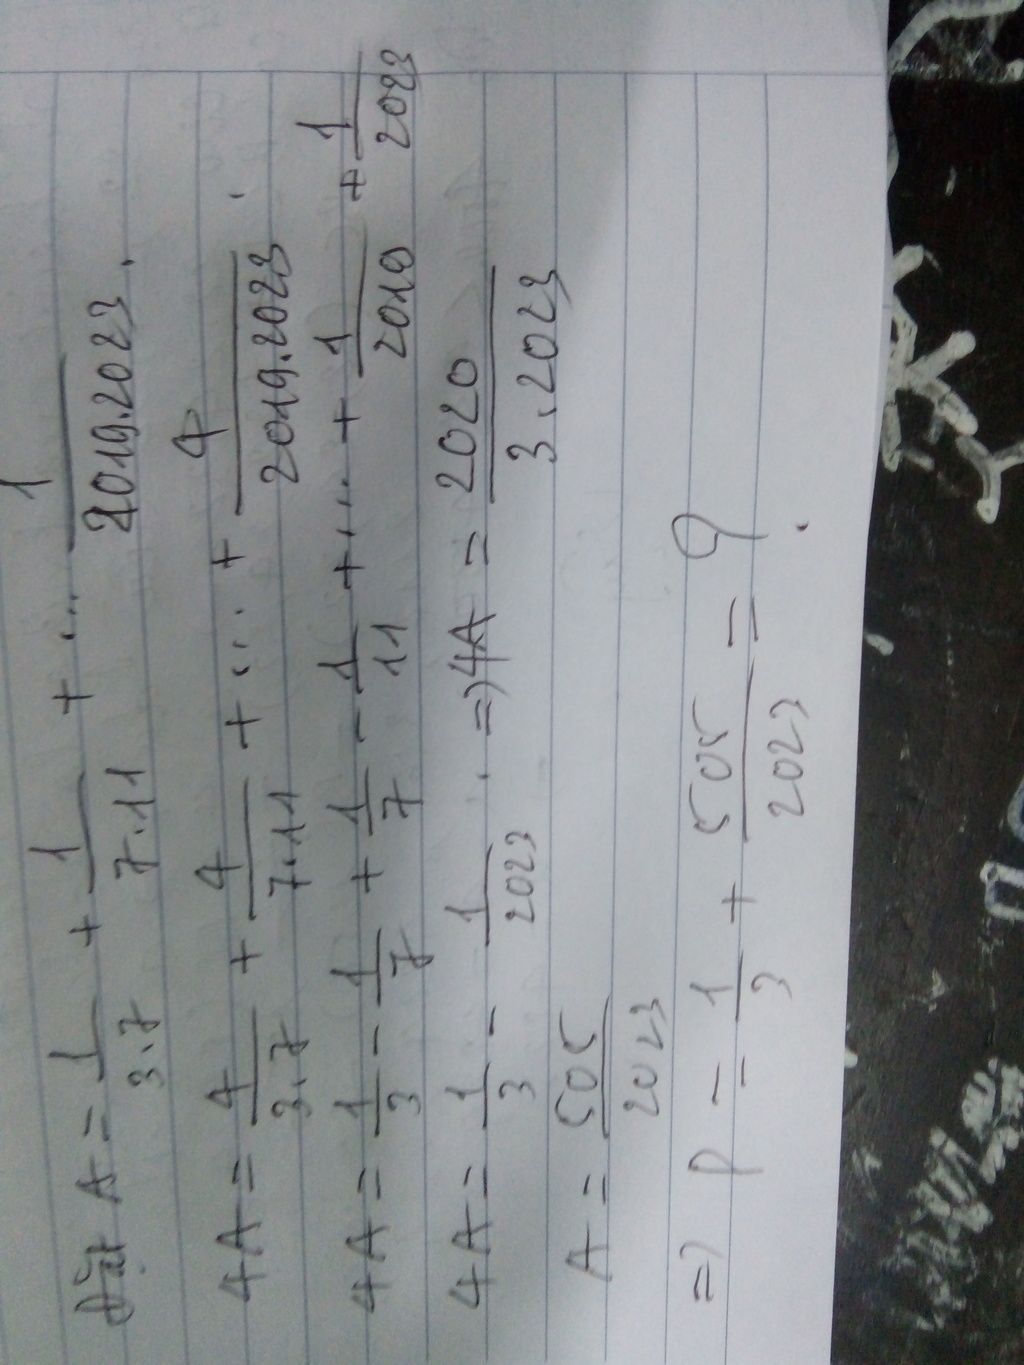 Đặt A = 1/3.7 + 1/7.11 + ... 1/2019.2023.
4A = 4/3.7 + 4/7.11 + ... + 4/2019.2023.
4A = 1/3 - 1/7 + 1/7 - 1/11 + ... + 1/2019 + 1/2023
4A = 1/3 - 1/2023. => 4A = 2020/3.2023
A = 505/2023
=> P = 1/3 + 505/2023 = ?